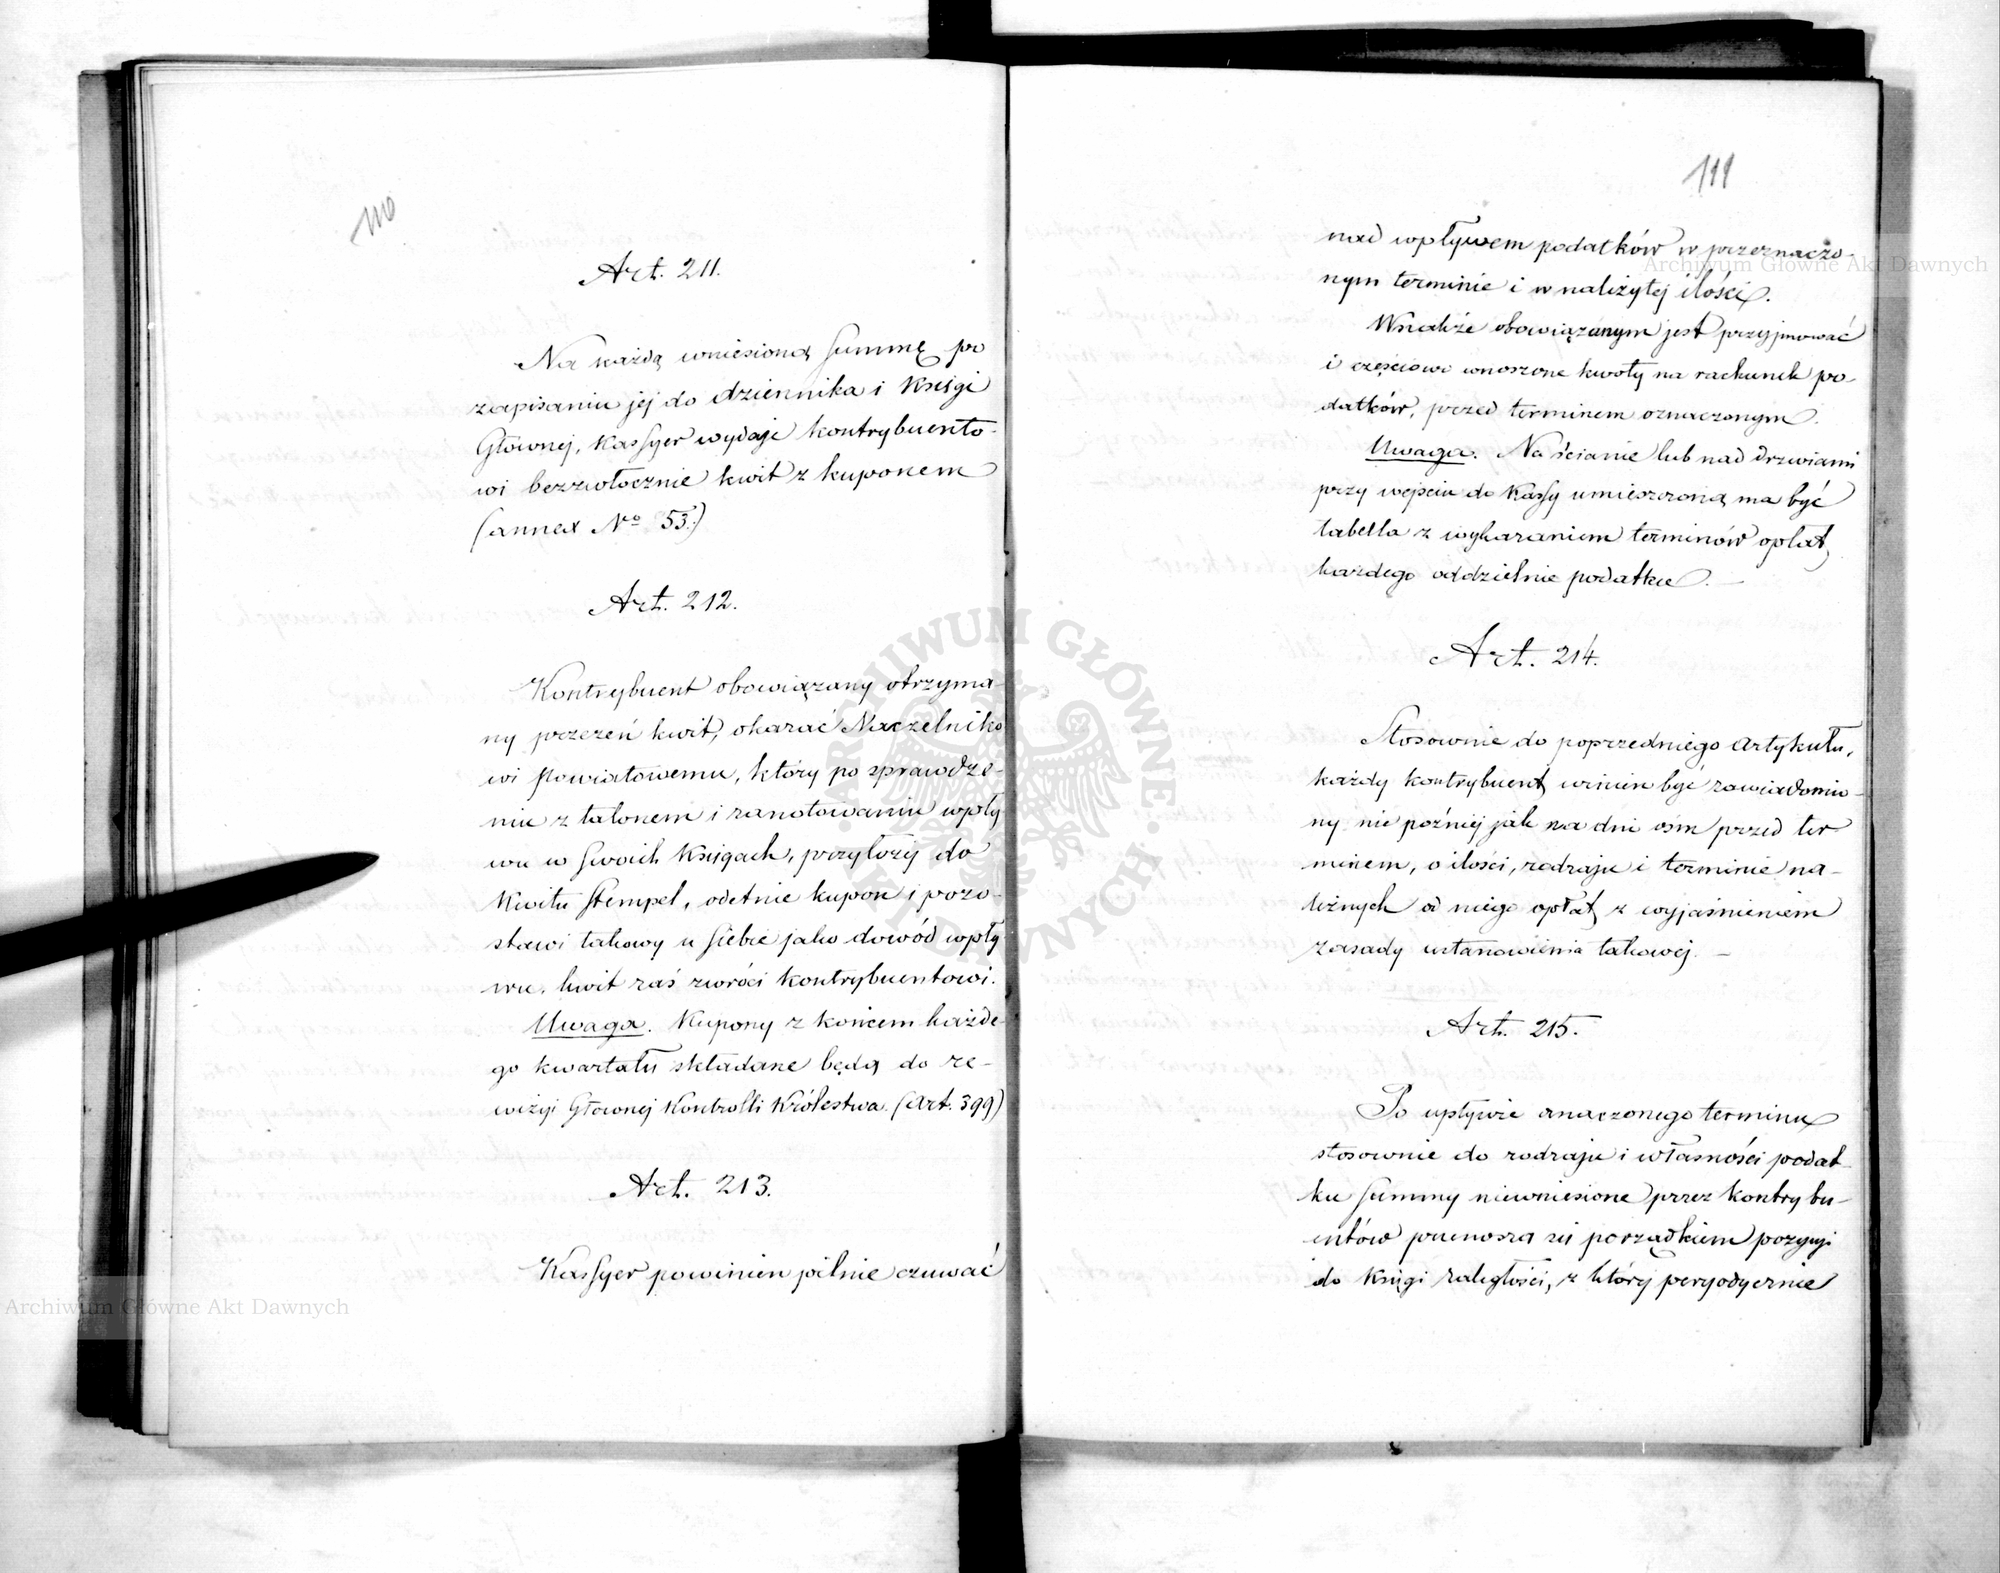 110
Art. 211.
Na każdą wniesioną Summę po
zapisaniu jej do dziennika i Księgi
Głównej, Kassyer wydaje kontrybuento-
wi bezzwłocznie kwit z kuponem
(annex No 53.)
Art. 212.
Kontrybuent obowiązany otrzyma-
ny przezeń kwit, okazać Naczelniko
wi Powiatowemu, który po sprawdze-
niu z talonem i zanotowaniu wpły
wu w Swoich Księgach, przyłoży do
Kwitu Stempel, odetnie kupon i pozo-
stawi takowy u Siebie jako dowód wpły
wu, kwit zaś zwróci Kontrybuentowi.
Uwaga. Kupony z końcem każde-
go kwartału składane będą do re-
wizyi Głównej Kontrolli Królestwa. (Art. 399)
Art. 213.
Kassyer powinien pilnie czuwać
111
nad wpływem podatków w przeznaczo-
nym terminie i w należytej ilości.
Wszakże obowiązanym jest przyjmować
i częściowo wnoszone kwoty na rachunek po-
datków, przed terminem oznaczonym.
Uwaga. Na ścianie lub nad drzwiami
przy wejściu do Kassy umieszczoną ma być
tabella z wykazaniem terminów opłat,
każdego oddzielnie podatku. —
Art. 214.
Stosownie do poprzedniego Artykułu,
każdy kontrybuent winien być zawiadomio-
ny nie później jak na dni ośm przed ter
minem, o ilości, rodzaju i terminie na-
leżnych od niego opłat, z wyjaśnieniem
zasady ustanowienia takowej. —
Art. 215.
Po upływie oznaczonego terminu
stosownie do rodzaju i własności podat-
ku Summy niewniesione przez kontrybu-
entów przenoszą się porządkiem pozycyj
do Księgi zaległości, z której peryodycznie
Archiwum Główne Akt Dawnych
Archiwum Główne Akt Dawnych
ARCHIWUM GŁÓWNE · AKT DAWNYCH ·